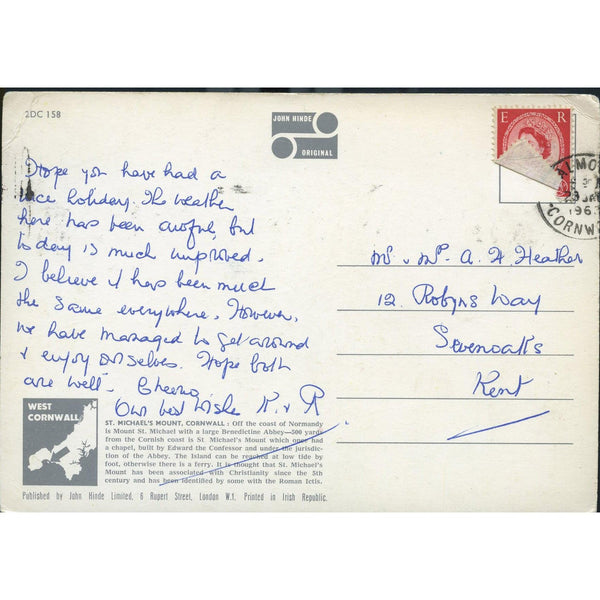 2DC 158
JOHN HINDE
ORIGINAL
E R
FALMO
1963
CORNW
Hope you have had a
nice holiday. The weather
here has been awful, but
to day is much improved.
I believe it has been much
the same everywhere. However,
we have managed to get around
& enjoy ourselves. Hope both
are well. Cheerio,
Our best wishes K. & R
Mr. & Mrs. A. H Heather
12. Robyns Way
Sevenoaks
Kent
WEST
CORNWALL
ST. MICHAEL'S MOUNT, CORNWALL : Off the coast of Normandy
is Mount St. Michael with a large Benedictine Abbey—500 yards
from the Cornish coast is St. Michael's Mount which once had
a chapel, built by Edward the Confessor and under the jurisdic-
tion of the Abbey. The Island can be reached at low tide by
foot, otherwise there is a ferry. It is thought that St. Michael's
Mount has been associated with Christianity since the 5th
century and has been identified by some with the Roman Ictis.
Published by John Hinde Limited, 6 Rupert Street, London W.1. Printed in Irish Republic.